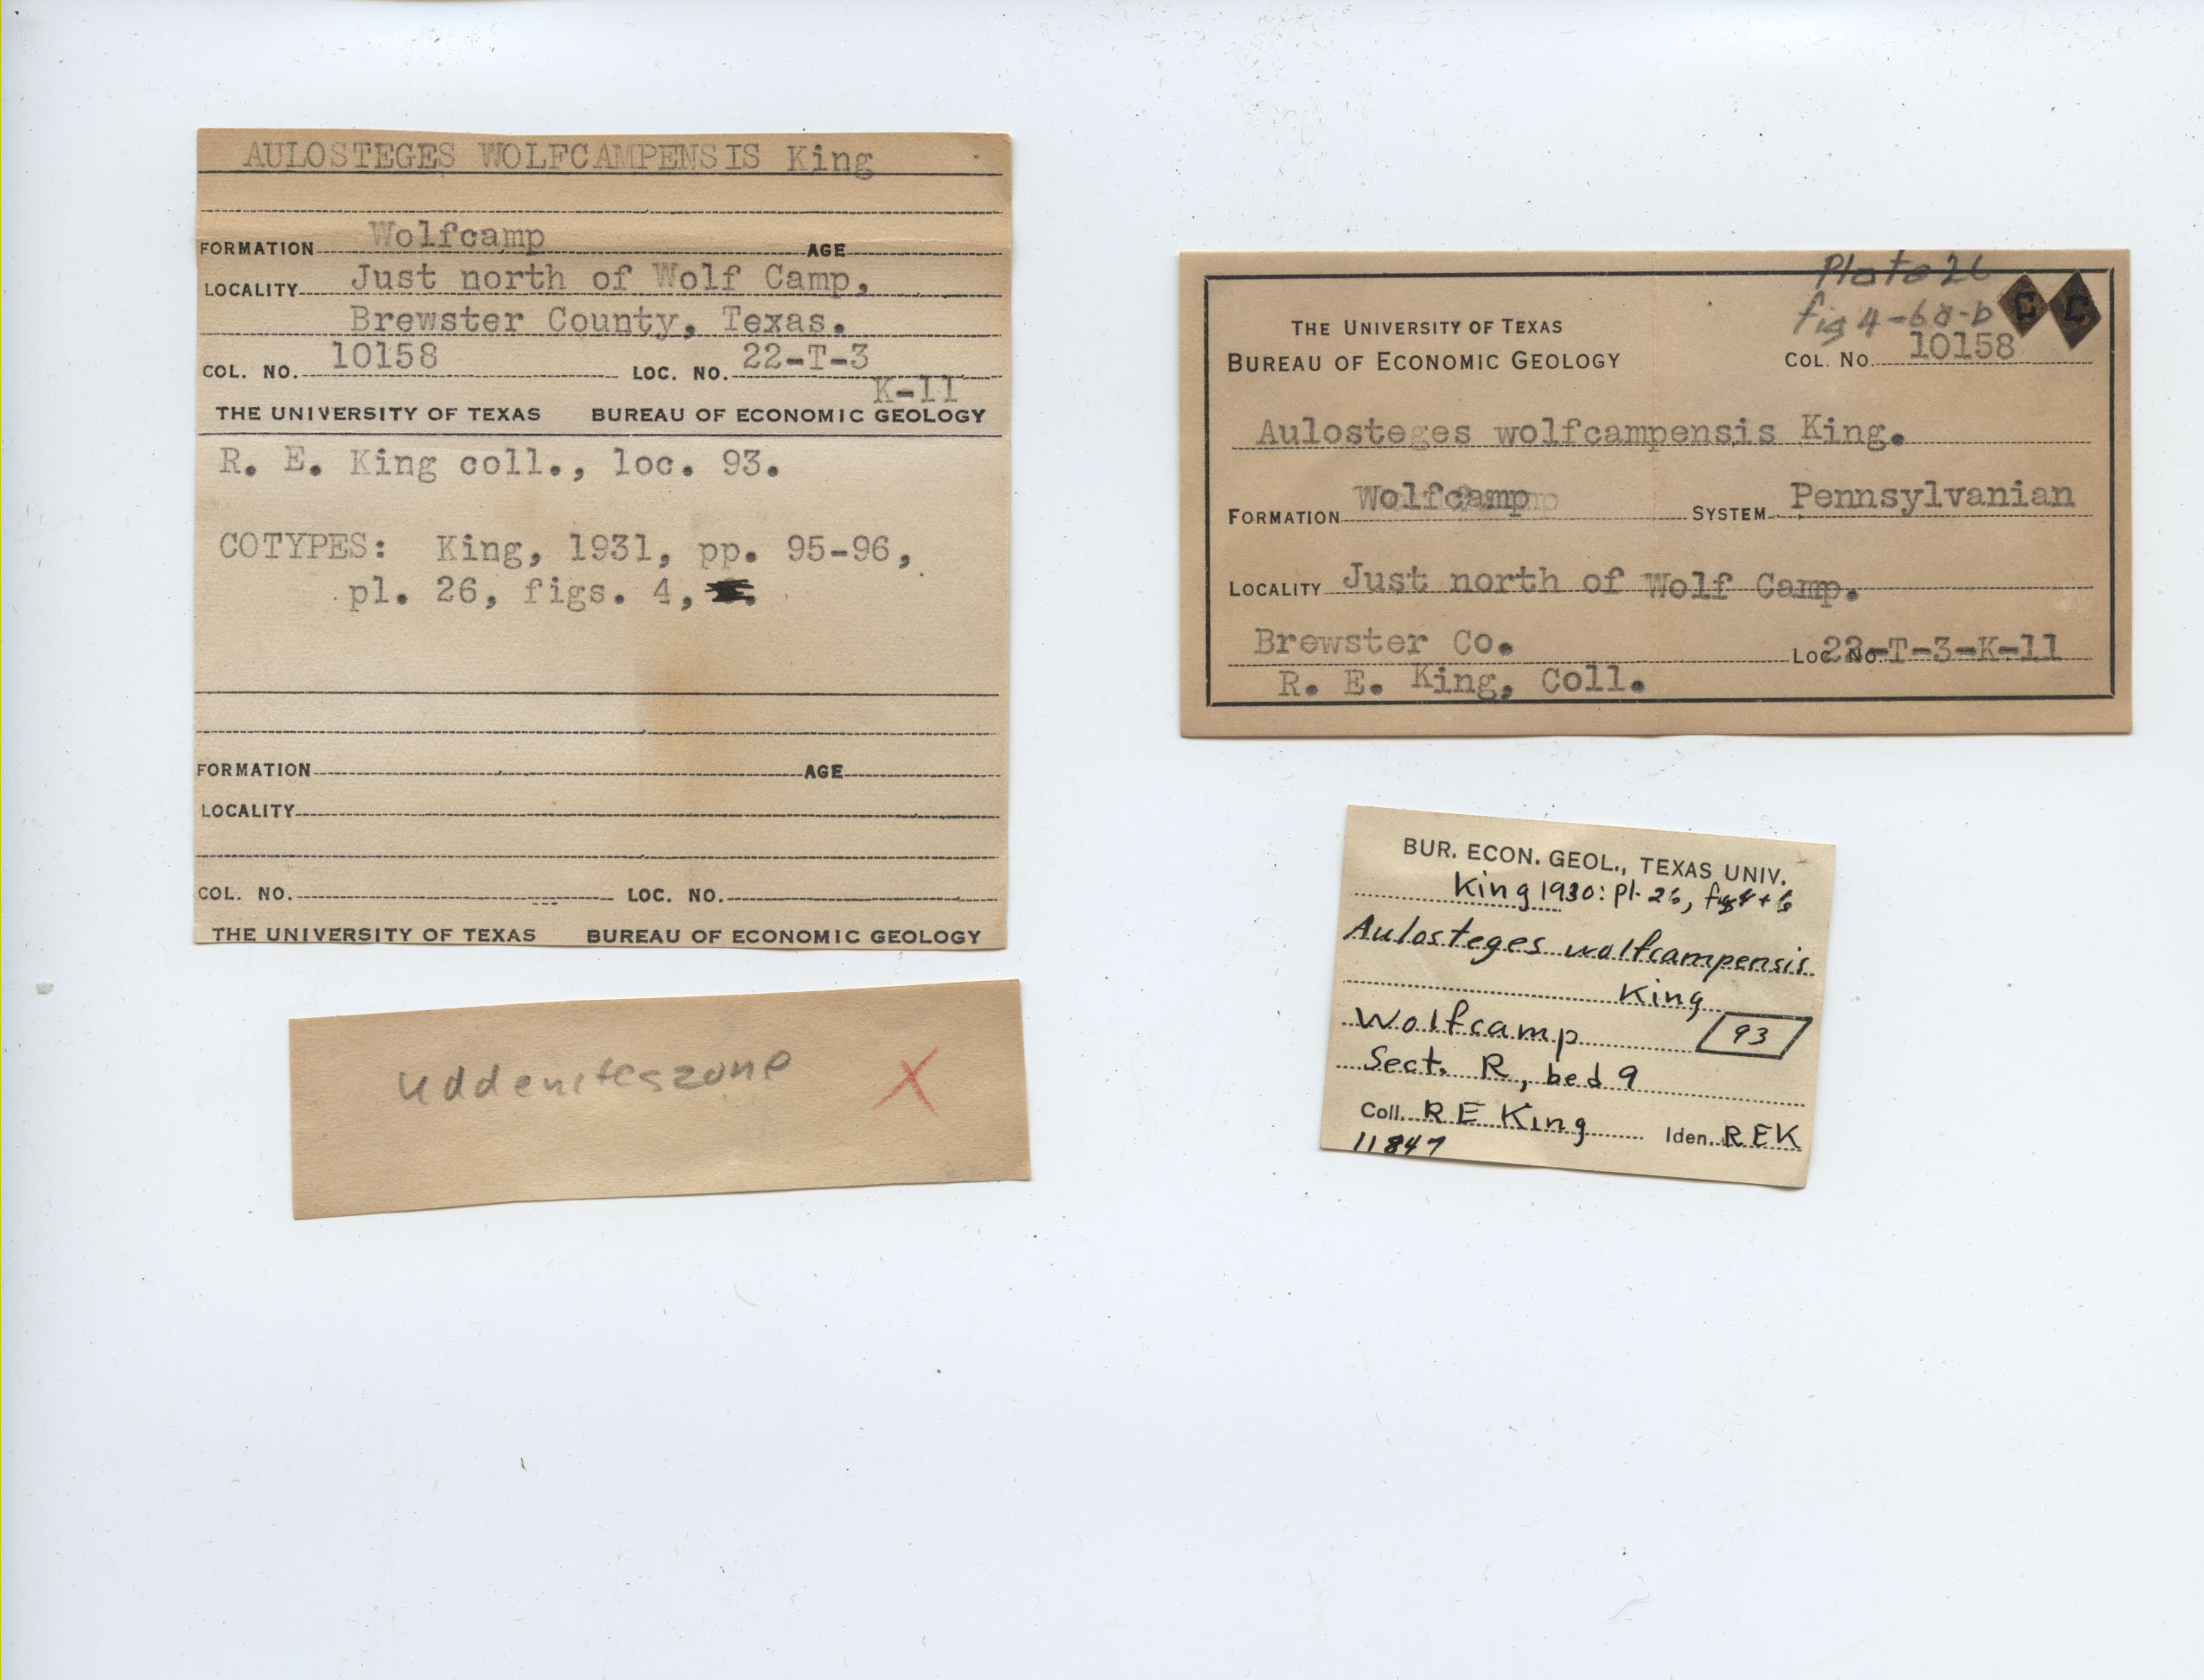 AULOSTEGES WOLFCAMPENSIS King
FORMATION Wolfcamp AGE
LOCALITY Just north of Wolf Camp,
Brewster County, Texas.
COL. NO. 10158 LOC. NO. 22-T-3
K-11
THE UNIVERSITY OF TEXAS BUREAU OF ECONOMIC GEOLOGY
R. E. King coll., loc. 93.
COTYPES: King, 1931, pp. 95-96,
pl. 26, figs. 4,
FORMATION AGE
LOCALITY
COL. NO. LOC. NO.
THE UNIVERSITY OF TEXAS BUREAU OF ECONOMIC GEOLOGY
Uddeniteszone X
Plate 26
fig 4-6a-b C C
THE UNIVERSITY OF TEXAS
BUREAU OF ECONOMIC GEOLOGY COL. NO. 10158
Aulosteges wolfcampensis King.
FORMATION Wolfcamp SYSTEM Pennsylvanian
LOCALITY Just north of Wolf Camp.
Brewster Co. LOC. NO. 22-T-3-K-11
R. E. King, Coll.
BUR. ECON. GEOL., TEXAS UNIV.
King 1930: pl. 26, fig 4 + 6
Aulosteges wolfcampensis
King
Wolfcamp 93
Sect. R, bed 9
Coll. R E King Iden. REK
11847